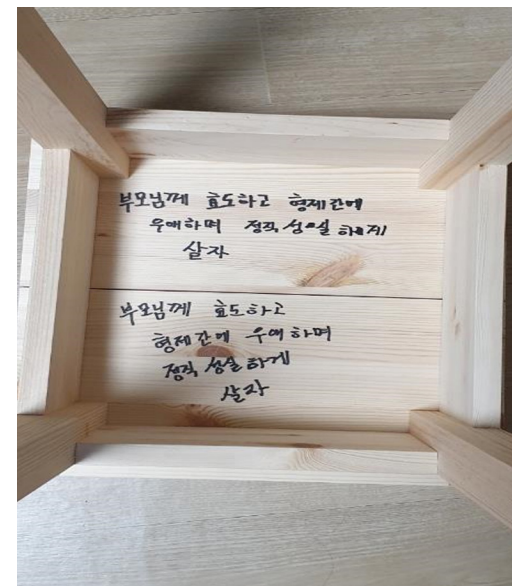 부모님께 효도하고 형제간에
우애하며 정직 성실 하게
살자
부모님께 효도하고
형제간에 우애하며
정직 성실하게
살자